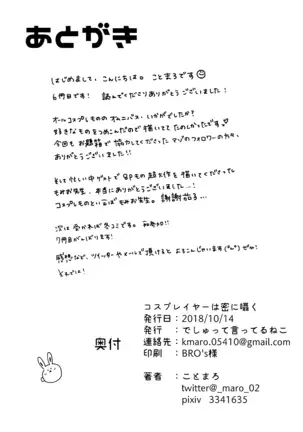 あとがき
はじめまして、こんにちは。ことまろです
6冊目です！読んでくださりありがとうございました！
オールコスプレものの オムニバス、いかがでしたか？
好きなものをつめこんだので 描いてて たのしかったです♡
今回も お題箱で 協力してくださった マゾのフォロワーの方々、
ありがとうございました!!
そして忙しい中ゲストで 8Pもの 超大作を 描いてくださった
もみお先生、本当にありがとうございました…!
コスプレものといえば もみお先生。謝謝茄子…
次は 受かれば 冬コミです。
7冊目がんばります!
感想など、ツイッターやメールで 頂けると よろこんじゃいます
コスプレイヤーは密に囁く
発行日：2018/10/14
発行　：でしゅって言ってるねこ
連絡先：kmaro.05410@gmail.com
印刷　：BRO's様
奥付
著者　：ことまろ
twitter@_maro_02
pixiv　3341635